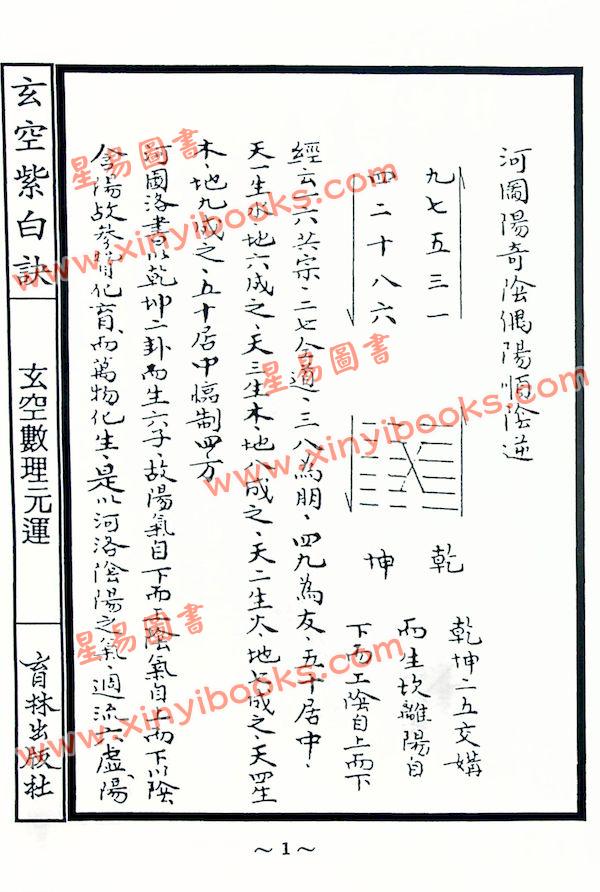 河圖陽奇陰偶陽順陰逆
九七五三一
四二十八六
乾
坤
乾坤二五交媾
而生坎離陽自
下而上陰自上而下
經云一六共宗、二七仝道、三八為朋、四九為友、五十居中、
天一生水、地六成之、天三生木、地八成之、天二生火、地七成之、天四生
木、地九成之、五十居中、制四方
河圖洛書以乾坤二卦而生六子、故陽氣自下而上陰氣自上而下以陰
含陽故參贊化育、而萬物化生、是以河洛陰陽之氣、週流六虛、陽
玄空紫白訣
玄空數理元運
育林出版社
~ 1 ~
星易圖書
www.xinyibooks.com
星易圖書
www.xinyibooks.com
星易圖書
www.xinyibooks.com